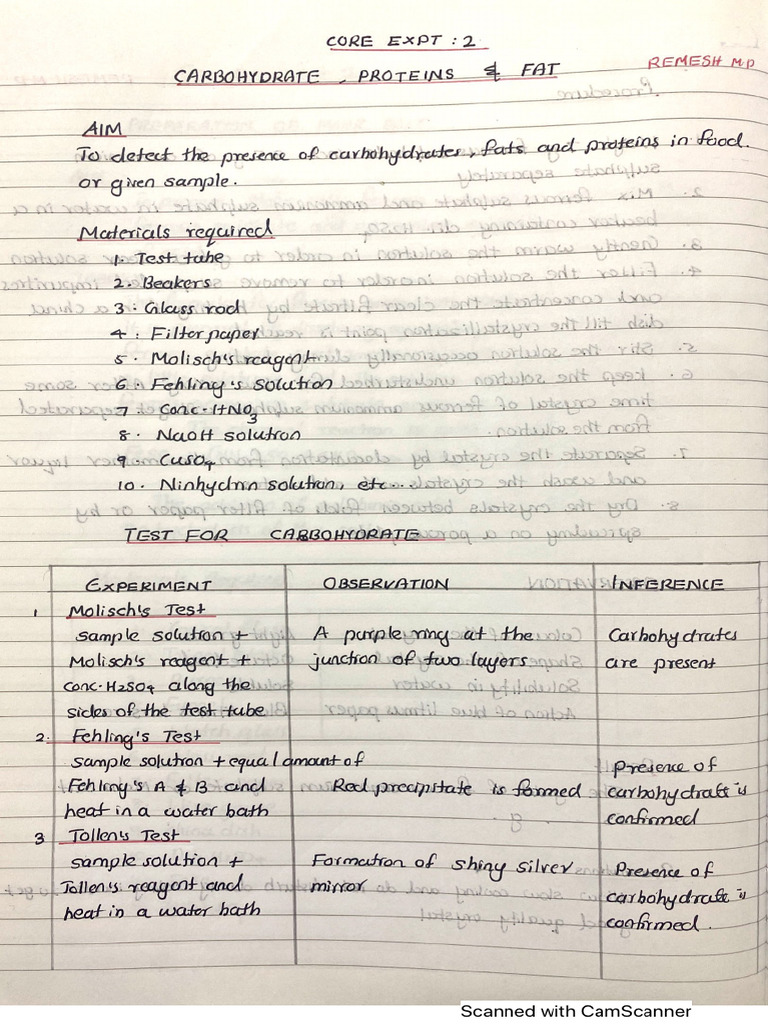 CORE EXPT : 2
CARBOHYDRATE , PROTEINS & FAT
REMESH M.D
AIM
To detect the presence of carbohydrates, fats and proteins in food.
or given sample.
Materials required
1. Test tube
2. Beakers
3. Glass rod
4. Filter paper
5. Molisch's reagent
6. Fehling's solution
7. Conc. HNO3
8. NaoH solution
9. CuSO4
10. Ninhydrin solution, etc...
TEST FOR CARBOHYDRATE
EXPERIMENT OBSERVATION INFERENCE
1. Molisch's Test
sample solution + A purple ring at the Carbohydrates
Molisch's reagent + junction of two layers are present
conc. H2SO4 along the
sides of the test tube
2. Fehling's Test
sample solution + equal amount of Presence of
Fehling's A & B and Red precipitate is formed carbohydrate is
heat in a water bath confirmed
3 Tollen's Test
sample solution + Formation of shiny silver Presence of
Tollen's reagent and mirror carbohydrate is
heat in a water bath confirmed.
Scanned with CamScanner